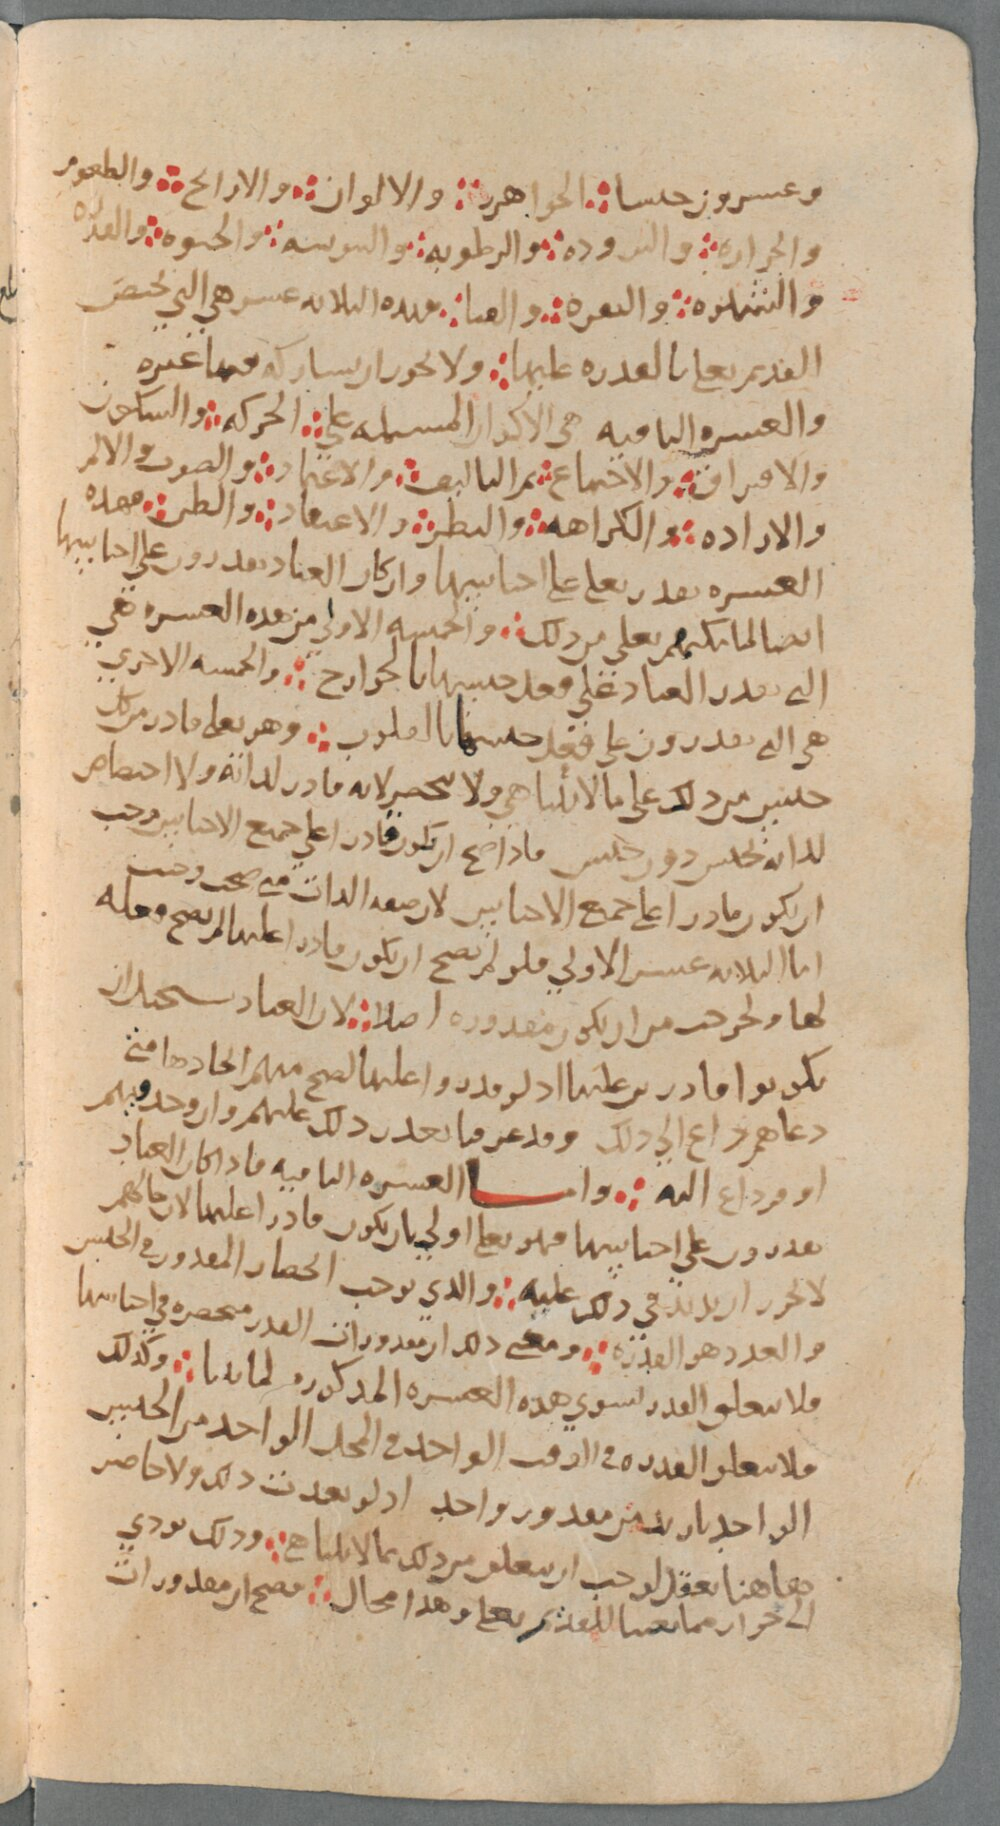 وعشرون جنسا الجواهر والالوان والارايح والطعوم
والحراره والبروده والرطوبه واليبوسه والحيوه والقدره
والشهوه والنفره والفنا فهذه الثلاثه عشر هي التي يختص
القديم تعلى بالقدره عليها ولا يجوز ان يشاركه فيها غيره
والعشره الباقيه هي الاكوان المشتمله على الحركه والسكون
والافتراق والاجتماع ثم التاليف والاعتماد والصوت والالم
والاراده والكراهه والنظر والاعتقاد والظن فهذه
العشره يقدر تعلى على اجناسها وان كان العباد يقدرون على اجناسها
ايضا لما مكنهم تعلى من ذلك والخمسه الاولى من هذه العشره هي
التي يقدر العباد على فعل جنسها بالجوارح والخمسه الاخرى
هي التي يقدرون على فعل جنسها بالقلوب وهو تعلى قادر من كل
جنس من ذلك على ما لا يتناهى ولا ينحصر لانه قادر لذاته ولا اختصاص
لذاته بجنس دون جنس فاذا صح ان يكون قادرا على جميع الاجناس وجب
ان يكون قادرا على جميع الاجناس لان صفه الذات متى صحت وجبت
اما الثلاثه عشر الاولى فلو لم يصح ان يكون قادرا عليها لم يصح فعله
لها ولخرجت من ان يكون مقدوره اصلا لان العباد يستحيل ان
يكونوا قادرين عليها اذ لو قدروا عليها لصح منهم ايجادها متى
دعاهم داع الى ذلك وقد عرفنا تعذر ذلك عليهم وان وجد فيهم
اوفر داع اليه واما العشره الباقيه فاذا كان العباد
يقدرون على اجناسها فهو تعلى اولى بان يكون قادرا عليها لان حالهم
لا يجوز ان يزيد في ذلك عليه والذي يوجب انحصار المقدور في الجنس
والعدد هو القدره ومعنى ذلك ان مقدورات القدر منحصره في اجناسها
فلا يتعلق القدر بسوى هذه العشره المذكوره لما بينا وكذلك
فلا يتعلق القدره في الوقت الواحد في المحل الواحد من الجنس
الواحد بازيد من مقدور واحد اذ لو تعدت ذلك ولا حاصر
هاهنا يعقل لوجب ان يتعلق من ذلك بما لا يتناهى وذلك يودي
الى جواز ممانعتنا للقديم تعلى وهذا محال فصح ان مقدورات